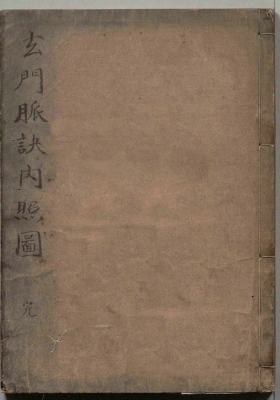 玄門脈訣内照圖
完